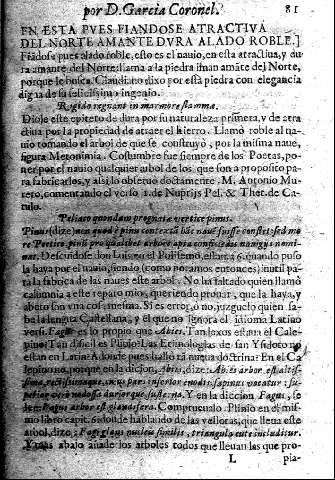 por D. Garcia Coronel. 81
EN ESTA PVES FIANDOSE ATRACTIVA
DEL NORTE AMANTE DVRA ALADO ROBLE.]
Fiādose pues alado roble, esto es el nauio, en esta atractiua, y du
ra amante del Norte: llama a la piedra iman amāte del Norte,
porque le busca. Claudiano dixo por esta piedra con elegancia
digna de su felicissimo ingenio.
Rigido regnant in marmore flammæ.
Diole este epiteto de dura por su naturaleza primera, y de atra
ctiua por la propiedad de atraer el hierro. Llamò roble al na-
uio tomando el arbol de que se construyò, por la misma naue,
figura Metonimia. Costumbre fue siempre de los Poetas, po-
ner por el nauio qualquier arbol de los que son a proposito pa
ra fabricarlos, y assi lo obseruò doctamente M. Antonio Mu-
reto, comentando el verso de Nuptijs Pel. & Thet. de Ca-
tulo.
Peliaco quondam prognatæ vertice pinus.
Pinus (dize)
re Poetico pinū pro qualibet arbore apta conficiēdis nauigijs nomi-
nat. Descuidose don Luis en el Polifemo, estança 6. quando puso
la haya por el nauio, siendo (como notamos entonces) inutil pa-
ra la fabrica de las naues este arbol. No ha faltado quien llamò
calumnia a este reparo mio, queriendo prouar, que la haya, y
abeto son vna cosa misma. Si es error, ò no, juzguelo quien sa-
be la lengua Castellana, y el que no ignora el idioma Latino
verà. Fagus es lo propio que Abies, Tan lexos estaua el Cale-
pino? Tan dificil es Plinio? Las Etimologias de san Ysidoro no
están en Latin? A donde pues hallò tā nueua doctrina? En el Ca
lepino no, porque en la dicion, Abies, dize: Abies arbor est altis-
sima, rectissimaque,
. Y en la diccion Fagus, se
lee: Fagus arbor est glandifera. Compruevalo Plinio en el mis-
mo libro capit. 6. donde hablando de las vellotas, que lleua este
arbol, dize: Fagi glans nucleis similis, triangula cute includitur.
Y mas abajo añade los arboles todos que lleuan las que pro-
L pia-